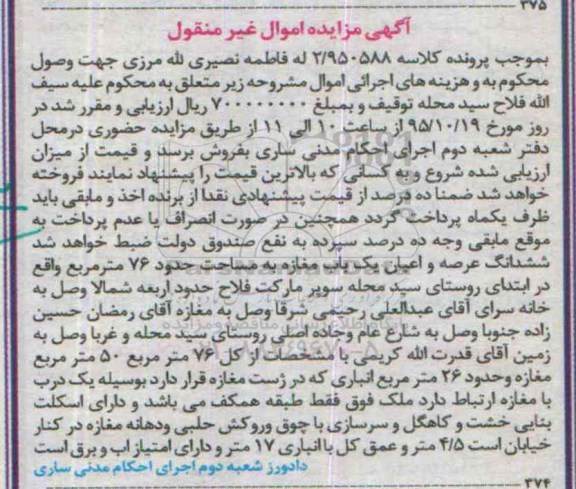 ۳۷۵
آگهی مزایده اموال غیر منقول
بموجب پرونده کلاسه ۲/۹۵۰۵۸۸ له فاطمه نصیری لله مرزی جهت وصول
محکوم به و هزینه های اجرائی اموال مشروحه زیر متعلق به محکوم علیه سیف
الله فلاح سید محله توقیف و بمبلغ ۷۰۰۰۰۰۰۰۰ ریال ارزیابی و مقرر شد در
روز مورخ ۹۵/۱۰/۱۹ از ساعت ۱۰ الی ۱۱ از طریق مزایده حضوری درمحل
دفتر شعبه دوم اجرای احکام مدنی ساری بفروش برسد و قیمت از میزان
ارزیابی شده شروع و به کسانی که بالاترین قیمت را پیشنهاد نمایند فروخته
خواهد شد ضمنا ده درصد از قیمت پیشنهادی نقدا از برنده اخذ و مابقی باید
ظرف یکماه پرداخت گردد همچنین در صورت انصراف یا عدم پرداخت به
موقع مابقی وجه ده درصد سپرده به نفع صندوق دولت ضبط خواهد شد
ششدانگ عرصه و اعیان یک باب مغازه به مساحت حدود ۷۶ مترمربع واقع
در ابتدای روستای سید محله سوپر مارکت فلاح حدود اربعه شمالا وصل به
خانه سرای آقای عبدالعلی رحیمی شرقا وصل به مغازه آقای رمضان حسین
زاده جنوبا وصل به شارع عام وجاده اصلی روستای سید محله و غربا وصل به
زمین آقای قدرت الله کریمی با مشخصات از کل ۷۶ متر مربع ۵۰ متر مربع
مغازه وحدود ۲۶ متر مربع انباری که در ژست مغازه قرار دارد بوسیله یک درب
با مغازه ارتباط دارد ملک فوق فقط طبقه همکف می باشد و دارای اسکلت
بنایی خشت و کاهگل و سرسازی با چوق وروکش حلبی ودهانه مغازه در کنار
خیابان است ۴/۵ متر و عمق کل با انباری ۱۷ متر و دارای امتیاز اب و برق است
دادورز شعبه دوم اجرای احکام مدنی ساری
۳۷۴